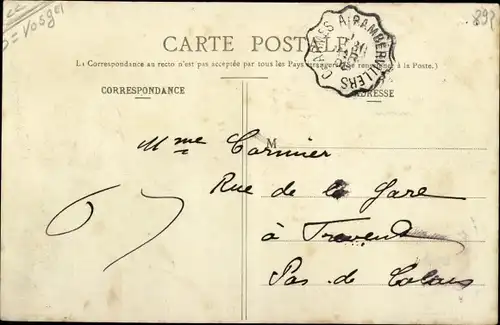 = Vosges
892
CARTE POSTALE
(La Correspondance au recto n'est pas acceptée par tous les Pays étrangers. (Se renseigner à la Poste.)
CHARMES A RAMBERVILLERS
CORRESPONDANCE
ADRESSE
M
Mme Cormier
Rue de la Gare
à Frevent
Pas de Calais